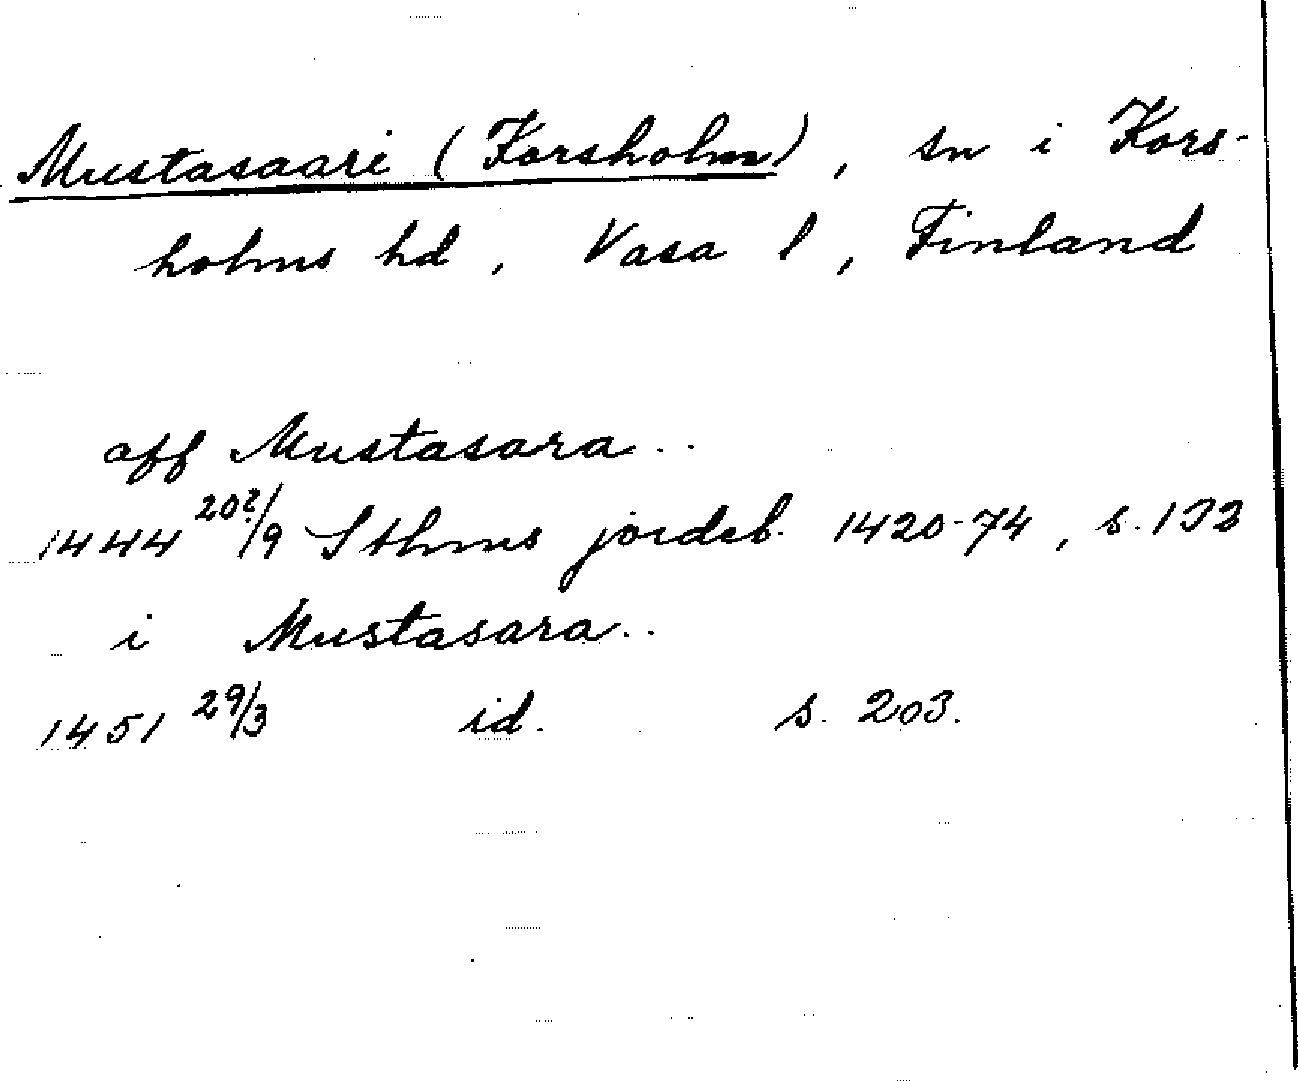 Mustasaari (Korsholm), sn i Kors-
holms hd, Vasa l, Finland
aff Mustasara..
1444 20?/9 Sthms jordeb. 1420-74, s. 132
i Mustasara..
1451 29/3 id. s. 203.